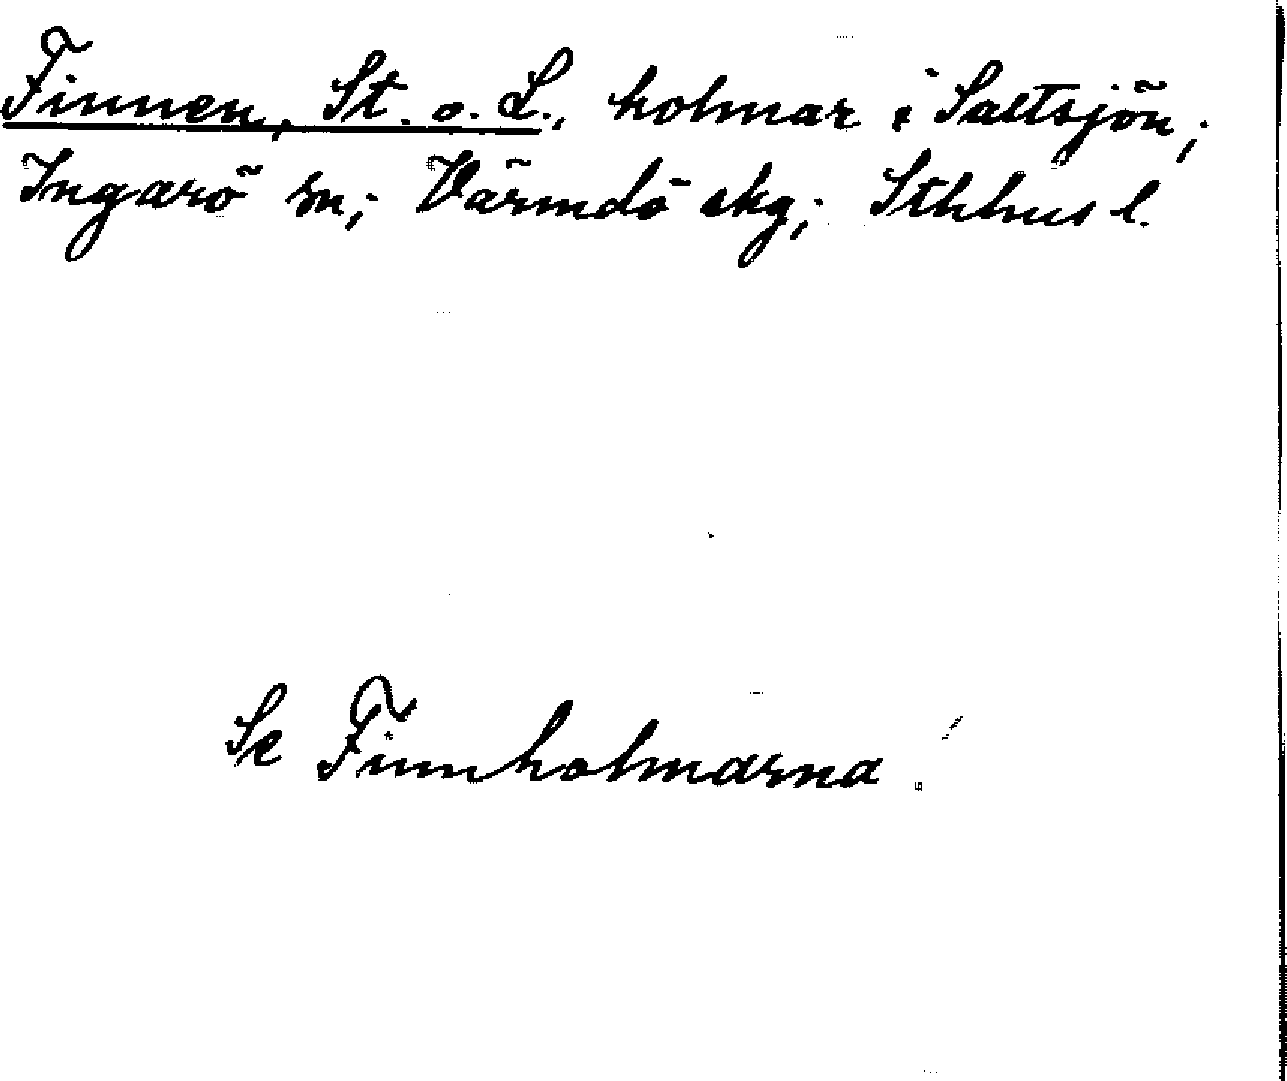 Finnen, St. o. L., holmar i Saltsjön;
Ingarö sn; Värmdö skg; Sthlms l.
Se Finnholmarna!